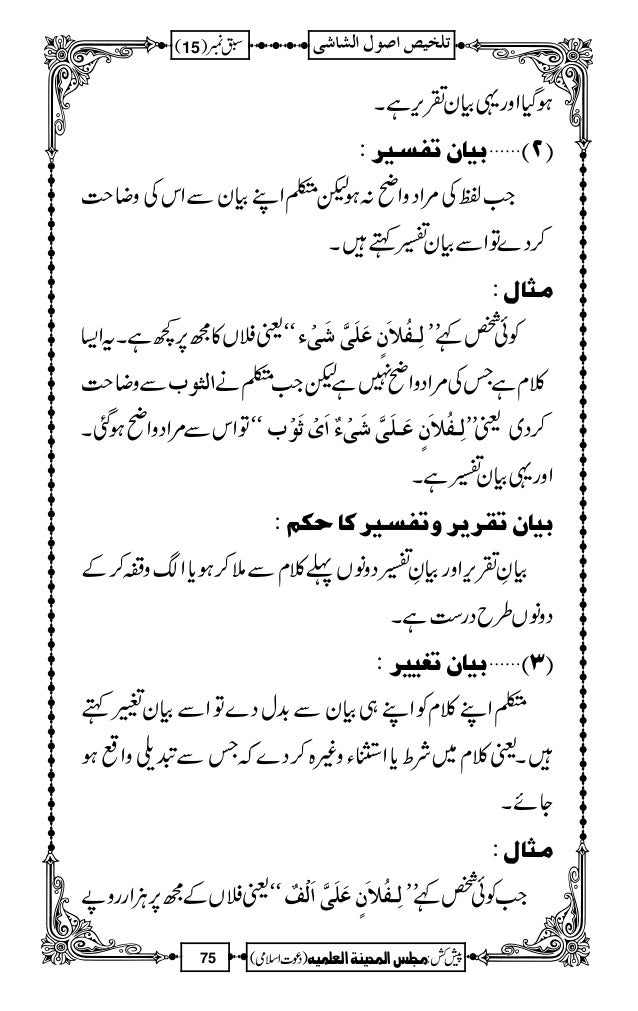 تلخیص اصول الشاشی
سبق نمبر (15)
ہوگیا اور یہی بیان تقریر ہے۔
(۲)······بیان تفسیر :
جب لفظ کی مراد واضح نہ ہو لیکن متکلم اپنے بیان سے اس کی وضاحت
کردے تو اسے بیان تفسیر کہتے ہیں ۔
مثال :
کوئی شخص کہے’’ لِفُلاَنٍ عَلَیَّ شَیْء ‘‘یعنی فلاں کا مجھ پر کچھ ہے۔ یہ ایسا
کلام ہے جس کی مراد واضح نہیں ہے لیکن جب متکلم نے الثوب سے وضاحت
کردی یعنی’’لِفُلاَنٍ عَلَیَّ شَیْءٌ اَیْ ثَوْب ‘‘ تو اس سے مراد واضح ہوگئی۔
اور یہی بیان تفسیر ہے۔
بیان تقریر وتفسیر کا حکم :
بیانِ تقریر اور بیانِ تفسیر دونوں پہلے کلام سے ملا کر ہو یا الگ وقفہ کر کے
دونوں طرح درست ہے۔
(۳)······بیان تغییر :
متکلم اپنے کلام کو اپنے ہی بیان سے بدل دے تو اسے بیان تغییر کہتے
ہیں۔ یعنی کلام میں شرط یا استثناء وغیرہ کردے کہ جس سے تبدیلی واقع ہو
جائے۔
مثال :
جب کوئی شخص کہے’’ لِفُلاَنٍ عَلَیَّ اَلْفٌ ‘‘یعنی فلاں کے مجھ پر ہزار روپے
پیش کش: مجلس المدینة العلمیه (دعوت اسلامی)
75